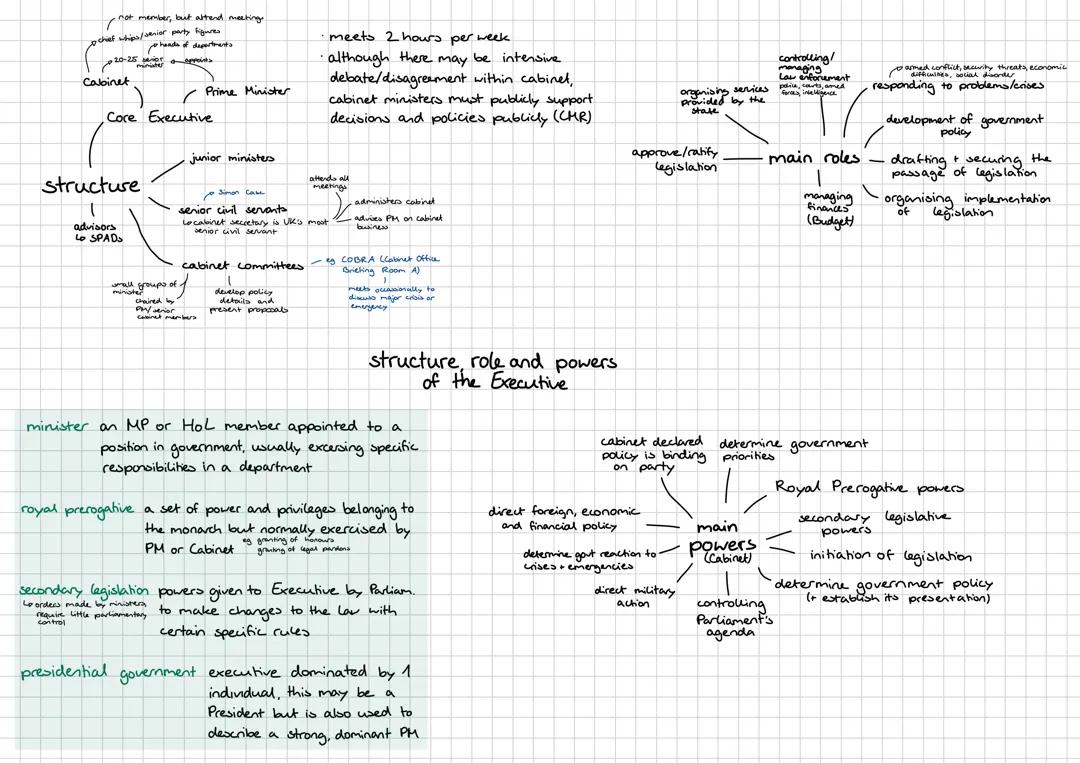 not member, but attend meetings
chief whips/senior party figures
heads of departments
20-25 senior minister
appoints
Cabinet
Prime Minister
Core Executive
structure
junior ministers
Simon Case
senior civil servants
↳ cabinet secretary is UK's most
senior civil servant
attends all
meetings
administers cabinet
advises PM on cabinet
business
advisors
↳ SPADs
cabinet committees
small groups of
minister
chaired by
PM/senior
cabinet members
develop policy
details and
present proposals
eg COBRA (Cabinet Office
Briefing Room A)
meets occasionally to
discuss major crisis or
emergency
· meets 2 hours per week
· although there may be intensive
debate/disagreement within cabinet,
cabinet ministers must publicly support
decisions and policies publicly (CMR)
main roles
controlling/
managing
law enforcement
police, courts, armed
forces, intelligence
organising services
provided by the
state
approve/ratify
legislation
managing
finances
(Budget)
armed conflict, security threats, economic
difficulties, social disorder
responding to problems/crises
development of government
policy
drafting + securing the
passage of legislation
organising implementation
of legislation
structure, role and powers
of the Executive
minister an MP or HoL member appointed to a
position in government, usually excersing specific
responsibilities in a department
royal prerogative a set of power and privileges belonging to
the monarch but normally exercised by
PM or Cabinet eg granting of honours
granting of legal pardons
secondary legislation powers given to Executive by Parliam.
↳ orders made by ministers,
require little parliamentary
control
to make changes to the law with
certain specific rules
presidential government executive dominated by 1
individual, this may be a
President but is also used to
describe a strong, dominant PM
main
powers
(Cabinet)
cabinet declared
policy is binding
on party
determine government
priorities
Royal Prerogative powers
secondary legislative
powers
initiation of legislation
determine government policy
(+ establish its presentation)
controlling
Parliament's
agenda
direct military
action
determine govt reaction to
crises + emergencies
direct foreign, economic
and financial policy